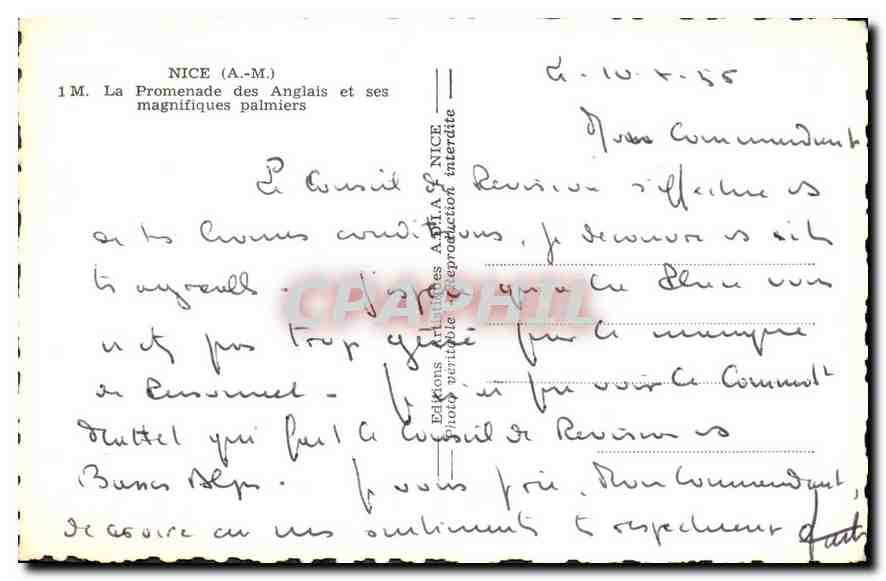 NICE (A.-M.)
1 M. La Promenade des Anglais et ses
magnifiques palmiers
Editions Artistiques A.D.I.A. NICE
Photo véritable - Reproduction interdite
CPAPHIL
Le 10-X-56
Mon Commandant
Le Conseil de Revision s'effectue
de bonnes conditions, je découvre
J'espère que vous
n'êtes pas trop gêné par le manque
de Personnel - Je pu voir le Commdt
qui fait le Conseil de Revision
Basses Alpes. Je vous prie, Mon Commandant,
de croire en mes sentiments respectueux